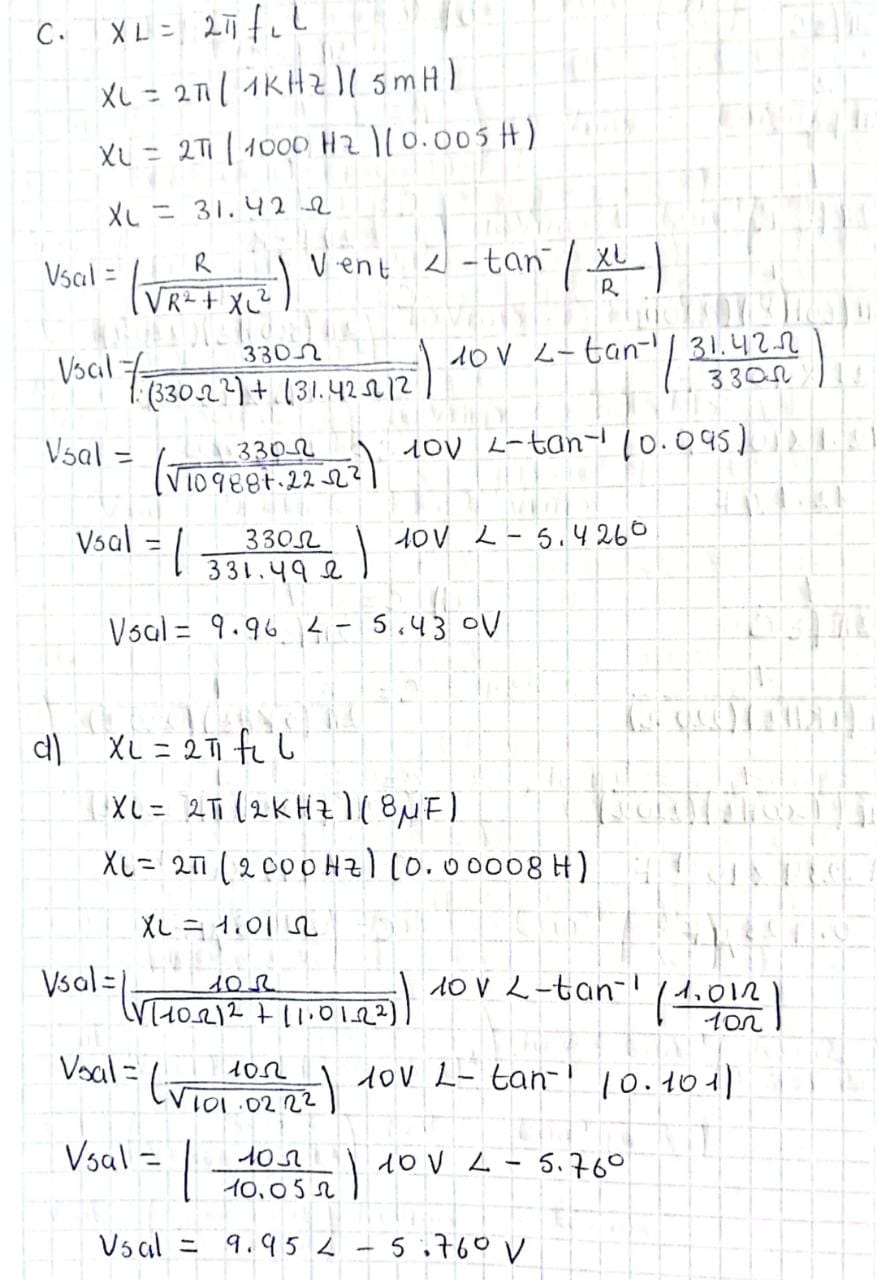 c. XL = 2π fL L
XL = 2π ( 1KHz )( 5mH )
XL = 2π ( 1000 Hz )( 0.005 H )
XL = 31.42 Ω
Vsal = ( R / √R² + XL² ) Vent ∠ -tan⁻ ( XL / R )
Vsal = ( 330Ω / (330Ω²) + (31.42Ω)2 ) 10V ∠ -tan⁻¹ ( 31.42Ω / 330Ω )
Vsal = ( 330Ω / √109887.22Ω² ) 10V ∠ -tan⁻¹ (0.095)
Vsal = ( 330Ω / 331.49 Ω ) 10V ∠ - 5.426°
Vsal = 9.96 ∠ - 5.43 °V
d) XL = 2π fL L
XL = 2π (2KHz )( 8μF)
XL = 2π (2000 Hz) (0.00008 H)
XL = 1.01 Ω
Vsal = ( 10Ω / √(10Ω)2 + (1.01Ω²) ) 10 V ∠ -tan⁻¹ ( 1.01Ω / 10Ω )
Vsal = ( 10Ω / √101.02Ω² ) 10V ∠ - tan⁻¹ (0.101)
Vsal = ( 10Ω / 10.05Ω ) 10V ∠ - 5.76°
Vsal = 9.95 ∠ - 5.76° V